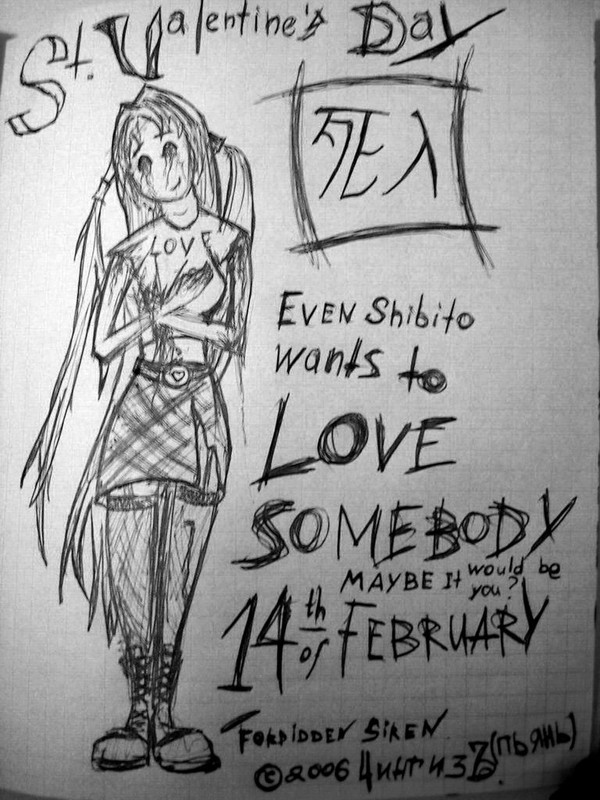 St. Valentine's Day
死人
LOVE
EVEN Shibito
wants to
LOVE
SOMEBODY
MAYBE It would be
you?
14th of FEBRUARY
FORBIDDEN SIREN
©2006 ЧИНГИЗ (ПЬЯНЬ)